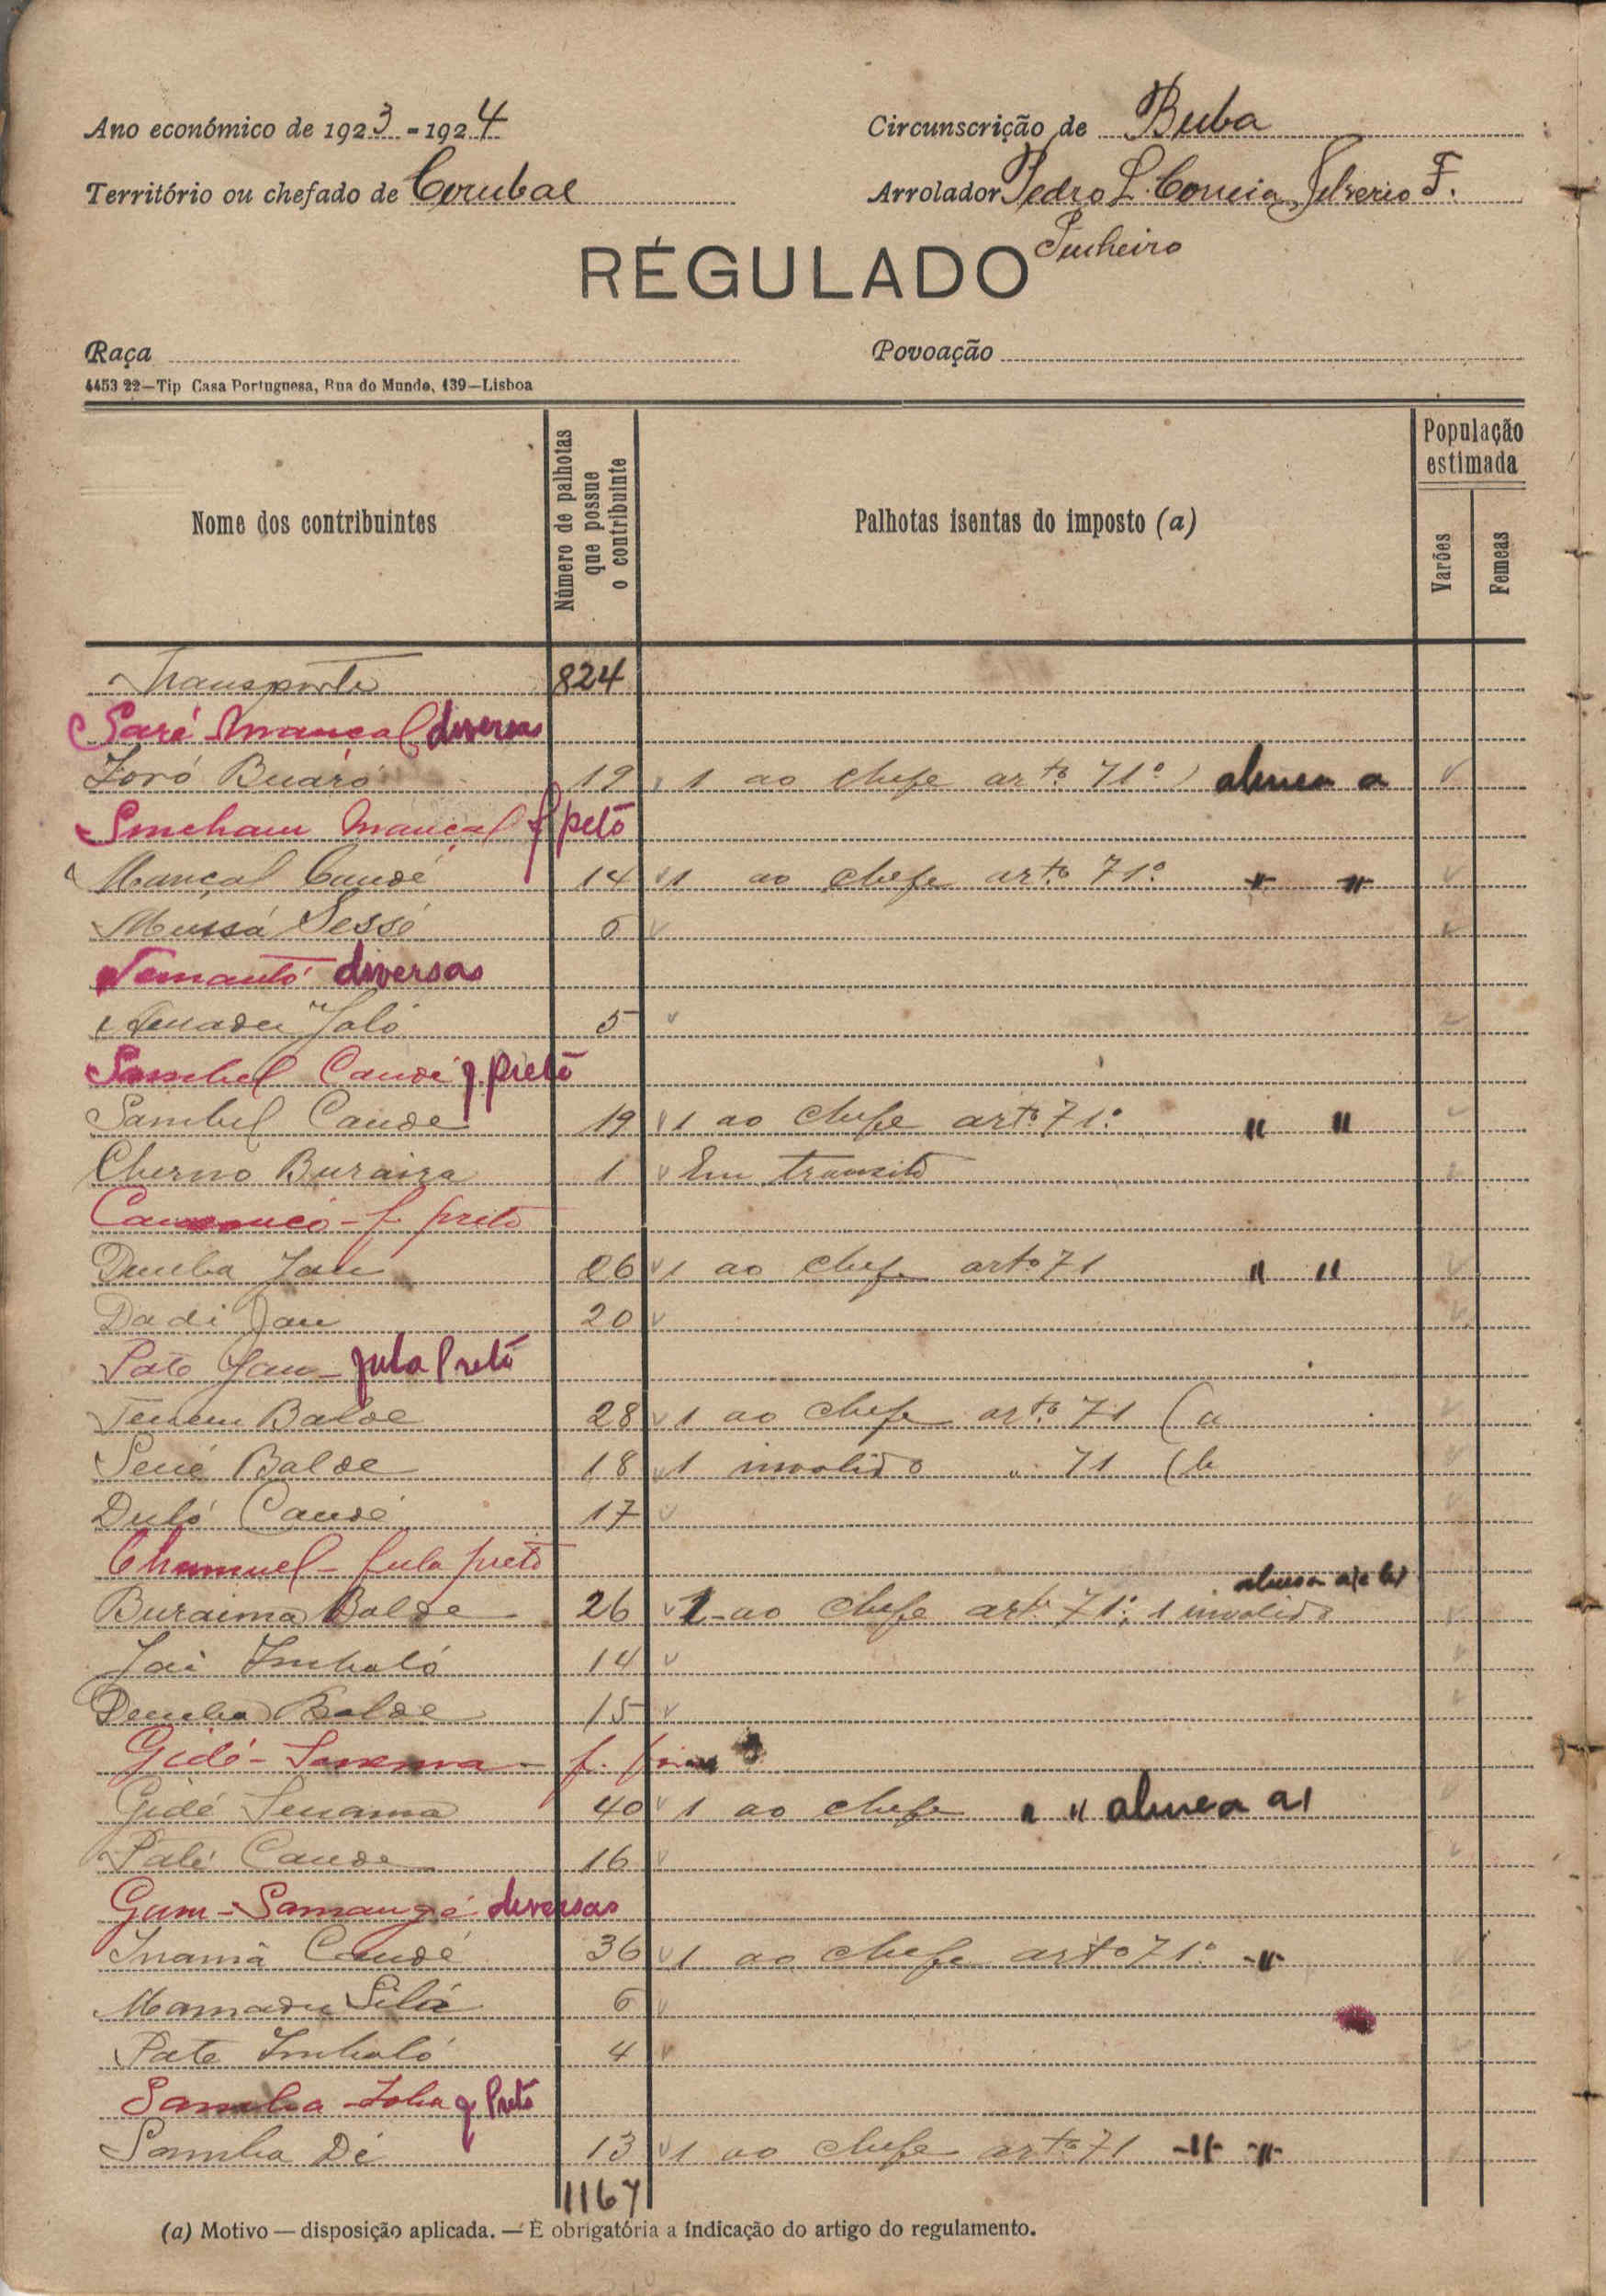 Ano económico de 1923 - 1924
Circunscrição de Buba
Território ou chefado de Corubal
Arrolador Pedro L. Correia, Silverio F.
Pinheiro
RÉGULADO
Raça
Povoação
4453 22—Tip Casa Portuguesa, Rua do Mundo, 139—Lisboa
Nome dos contribuintes
Número de palhotas que possue o contribuinte
Palhotas isentas do imposto (a)
População estimada
Varões
Femeas
Transporte 824
Saré Mancal diversas
Joró Buaró 19 1 ao chefe arto 71º alinea a
Sincham Mançal f peto
Mançal Candé 14 1 ao chefe arto 71º " "
Mussá Sessé 6
diversas
Amadu Jaló 5
Sambel Candé f. preto
Sambel Cande 19 1 ao chefe arto 71º " "
Cherno Buraira 1 Em transito
f. preto
Demba Jau 06 1 ao chefe arto 71 " "
Dadi Jau 20
Pate Jau - fula Preto
Balde 28 1 ao chefe arto 71 (a
Balde 18 1 invalido " 71 (b
Duló Candé 17
Chamuel - fula preto
Buraima Balde 26 1 ao chefe arto 71º, 1 invalido alinea a) e b)
Jai Imbaló 14
Demba Balde 15
Gidé - f.
Gidé 40 1 ao chefe " " alinea a)
Paté Cande 16
Gam - diversas
Inamá Candé 36 1 ao chefe arto 71º "
Mamadu Silá 6
Pate Imbaló 4
Samba f Preto
Samba Dé 13 1 ao chefe arto 71 " "
1167
(a) Motivo — disposição aplicada. — É obrigatória a indicação do artigo do regulamento.